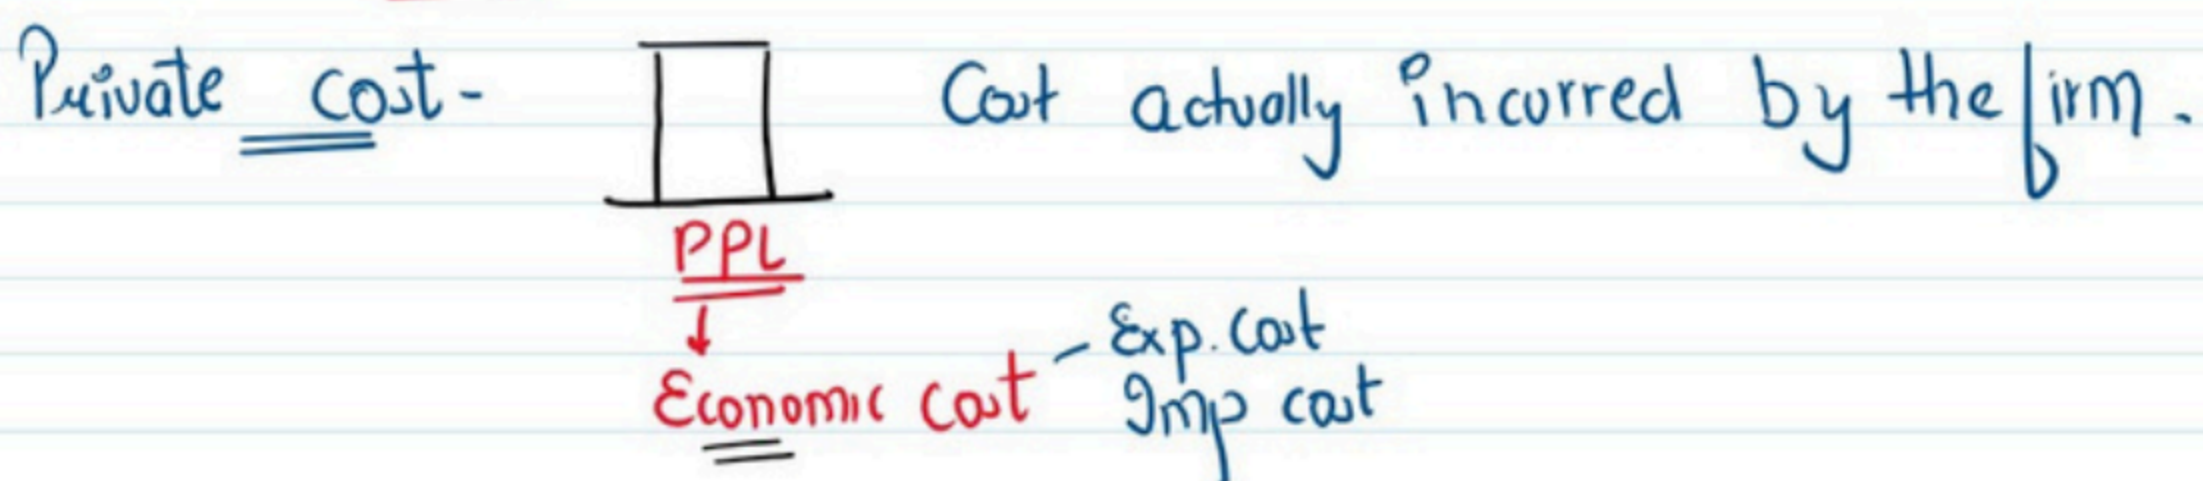 Private cost - Cost actually incurred by the firm.
PPL
Economic cost - Exp. cost
Imp cost